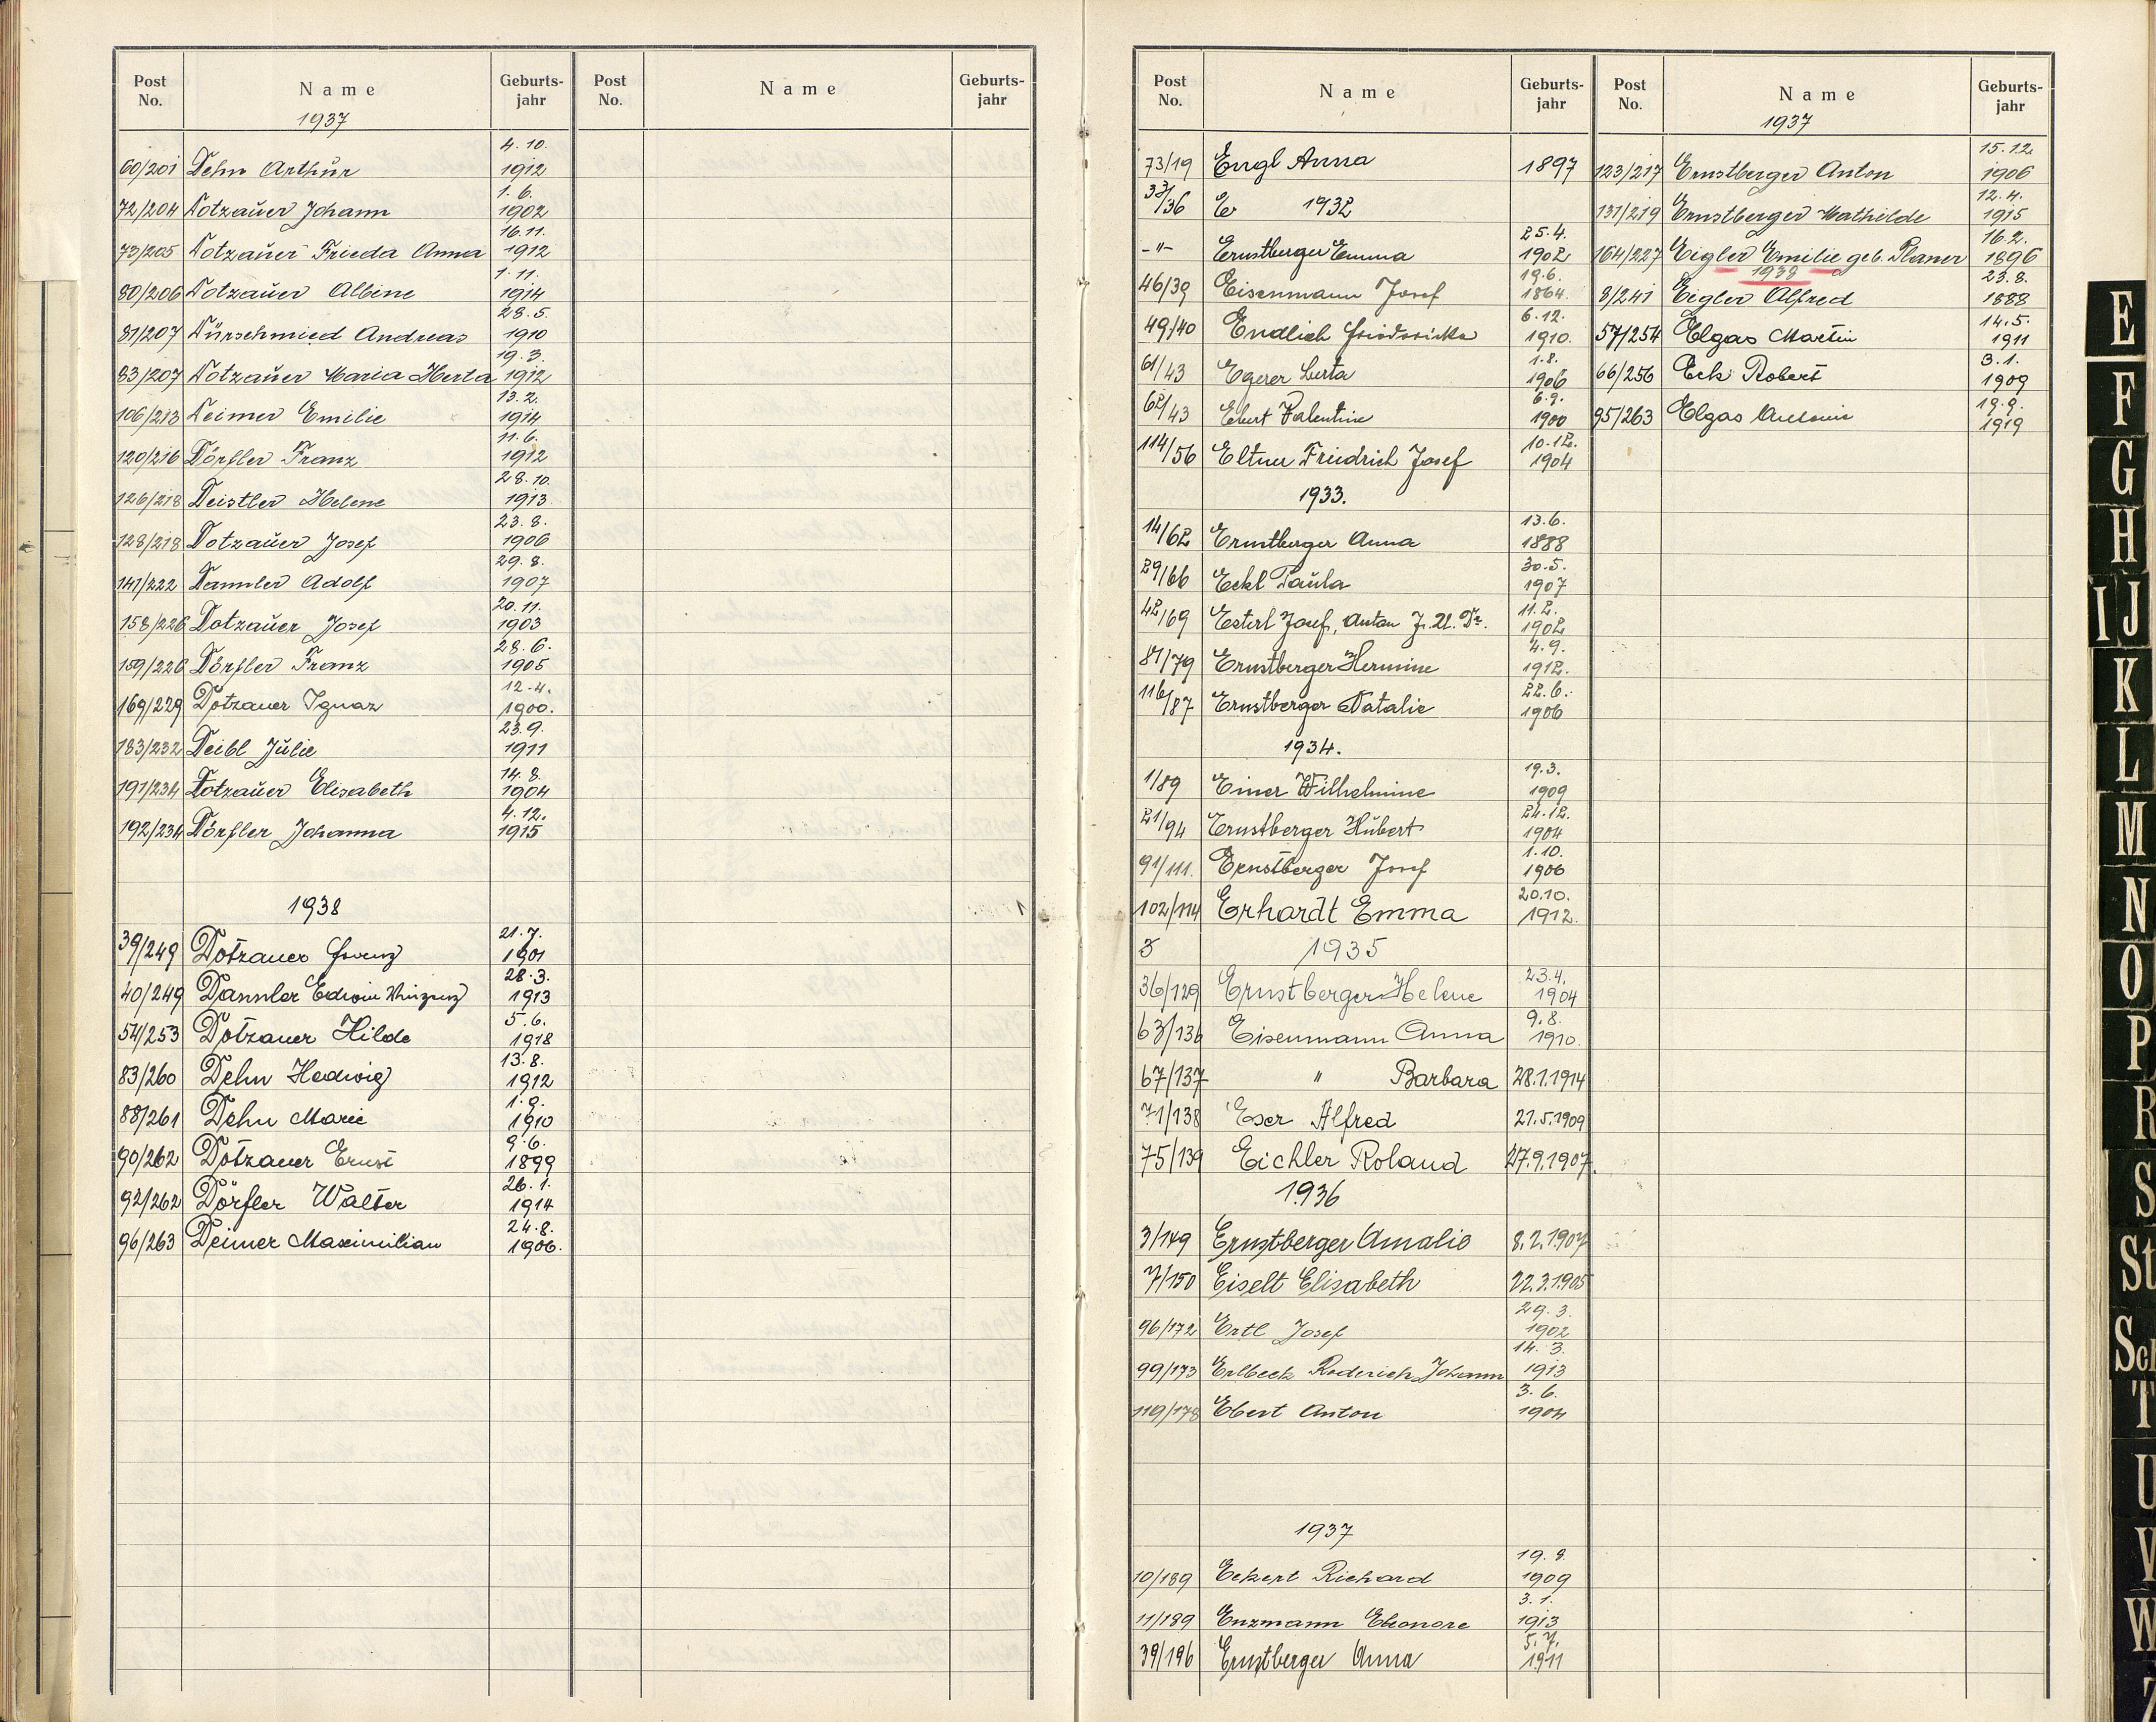 Post No. Name Geburts-jahr Post No. Name Geburts-jahr
1937
60/201 Dehn Arthur 4.10. 1912
72/204 Dotzauer Johann 1.6. 1902
73/205 Dotzauer Frieda Anna 16.11. 1912
80/206 Dotzauer Albine 1.11. 1914
81/207 Dürschmied Andreas 28.5. 1910
83/207 Dotzauer Maria Herta 19.3. 1912
106/213 Deimer Emilie 13.2. 1914
120/216 Dörfler Franz 11.6. 1912
126/218 Deistler Helene 28.10. 1913
128/218 Dotzauer Josef 23.8. 1906
141/222 Dannler Adolf 29.8. 1907
158/226 Dotzauer Josef 20.11. 1903
159/226 Dörfler Franz 28.6. 1905
169/229 Dotzauer Ignaz 12.4. 1900.
183/232 Deibl Julie 23.9. 1911
191/234 Dotzauer Elisabeth 14.8. 1904
192/234 Dörfler Johanna 4.12. 1915
1938
39/249 Dotzauer Franz 21.7. 1901
40/249 Dannler Edwin Vinzenz 28.3. 1913
54/253 Dotzauer Hilde 5.6. 1918
83/260 Dehn Hedwig 13.8. 1912
88/261 Dehn Marie 1.9. 1910
90/262 Dotzauer Ernst 9.6. 1899
92/262 Dörfler Walter 26.1. 1914
96/263 Deimer Maximilian 24.8. 1906.
Post No. Name Geburts-jahr Post No. Name Geburts-jahr
73/19 Engl Anna 1897
33/36 E 1932
-"- Ernstberger Emma 25.4. 1902
46/39 Eisenmann Josef 19.6. 1864.
49/40 Endlich Friedericka 6.12. 1910.
61/43 Egerer Berta 1.8. 1906
62/43 Ebert Valentin 6.9. 1900
114/56 Eltner Friedrich Josef 10.12. 1904
1933.
14/62 Ernstberger Anna 13.6. 1888
29/66 Eckl Paula 30.5. 1907
42/69 Esterl Josef, Anton J. U. Dr. 11.2. 1902
81/79 Ernstberger Hermine 4.9. 1912.
116/87 Ernstberger Natalie 22.6. 1906
1934.
1/89 Einer Wilhelmine 19.3. 1909
21/94 Ernstberger Hubert 24.12. 1904
91/111. Ernstberger Josef 1.10. 1906
102/114 Erhardt Emma 20.10. 1912.
3 1935
36/129 Ernstberger Helene 23.4. 1904
63/136 Eisenmann Anna 9.8. 1910.
67/137 " Barbara 28.1.1914
71/138 Eser Alfred 21.5.1909
75/139 Eichler Roland 27.9.1907.
1936
3/149 Ernstberger Amalie 8.2.1907
7/150 Eiselt Elisabeth 22.3.1905
96/172 Ertl Josef 29.3. 1902
99/173 Erlbeck Roderich Johann 14.3. 1913
119/178 Ebert Anton 3.6. 1904
1937
10/189 Eckert Richard 19.8. 1909
11/189 Enzmann Eleonore 3.1. 1913
39/196 Ernstberger Anna 5.7. 1911
1937
123/217 Ernstberger Anton 15.12. 1906
131/219 Ernstberger Mathilde 12.4. 1915
164/227 Eigler Emilie geb. Planer 16.2. 1896
1938
8/241 Eigler Alfred 23.8. 1888
57/254 Elgas Martin 14.5. 1911
66/256 Eck Robert 3.1. 1909
95/263 Elgas Antonie 19.9. 1919
E
F
G
H
IJ
K
L
M
N
O
P
R
S
St
Sch
T
U
V
W
Z